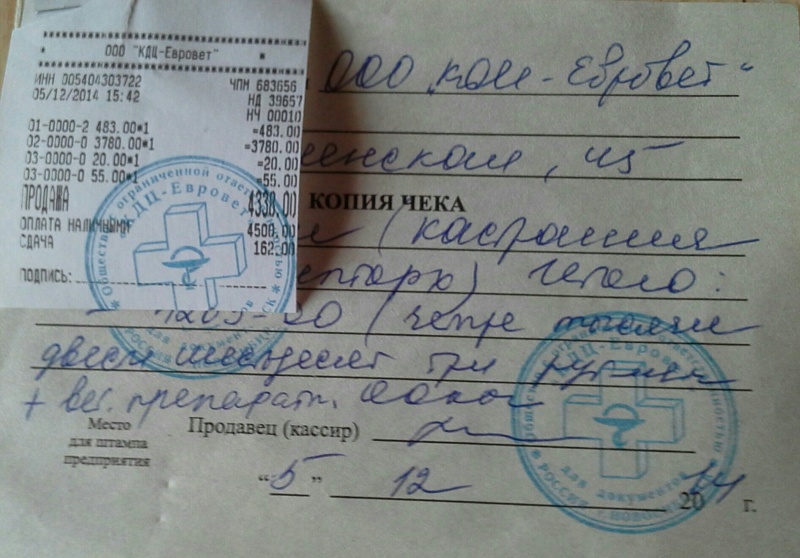 ООО "КДЦ-Евровет"
ИНН 005404303722 ЧПН 683656
05/12/2014 15:42 НД 39657
НЧ 00010
01-0000-2 483.00*1 =483.00
02-0000-0 3780.00*1 =3780.00
03-0000-0 20.00*1 =20.00
03-0000-0 55.00*1 =55.00
ПРОДАЖА 4338.00
ОПЛАТА НАЛИЧНЫМИ 4500.00
СДАЧА 162.00
ПОДПИСЬ:
ООО "КДЦ-Евровет"
КОПИЯ ЧЕКА
(кастрация
) Итого:
двести шестьдесят три рубля
+ вет. препарат.
Место для штампа предприятия
Продавец (кассир)
"5" 12 2014 г.
КДЦ-Евровет
для документов
КДЦ-Евровет
для документов